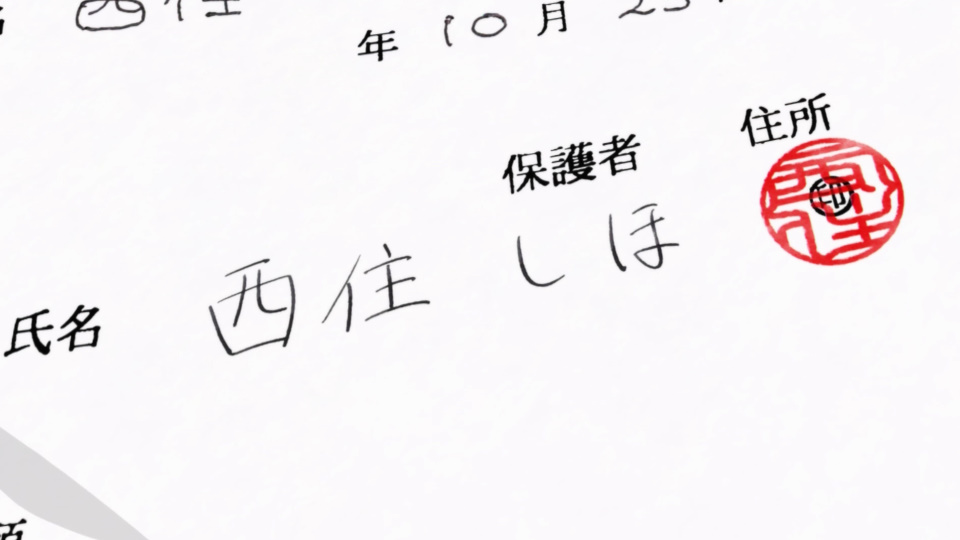 西住
年 10 月 23
保護者 住所
氏名 西住 しほ ㊞